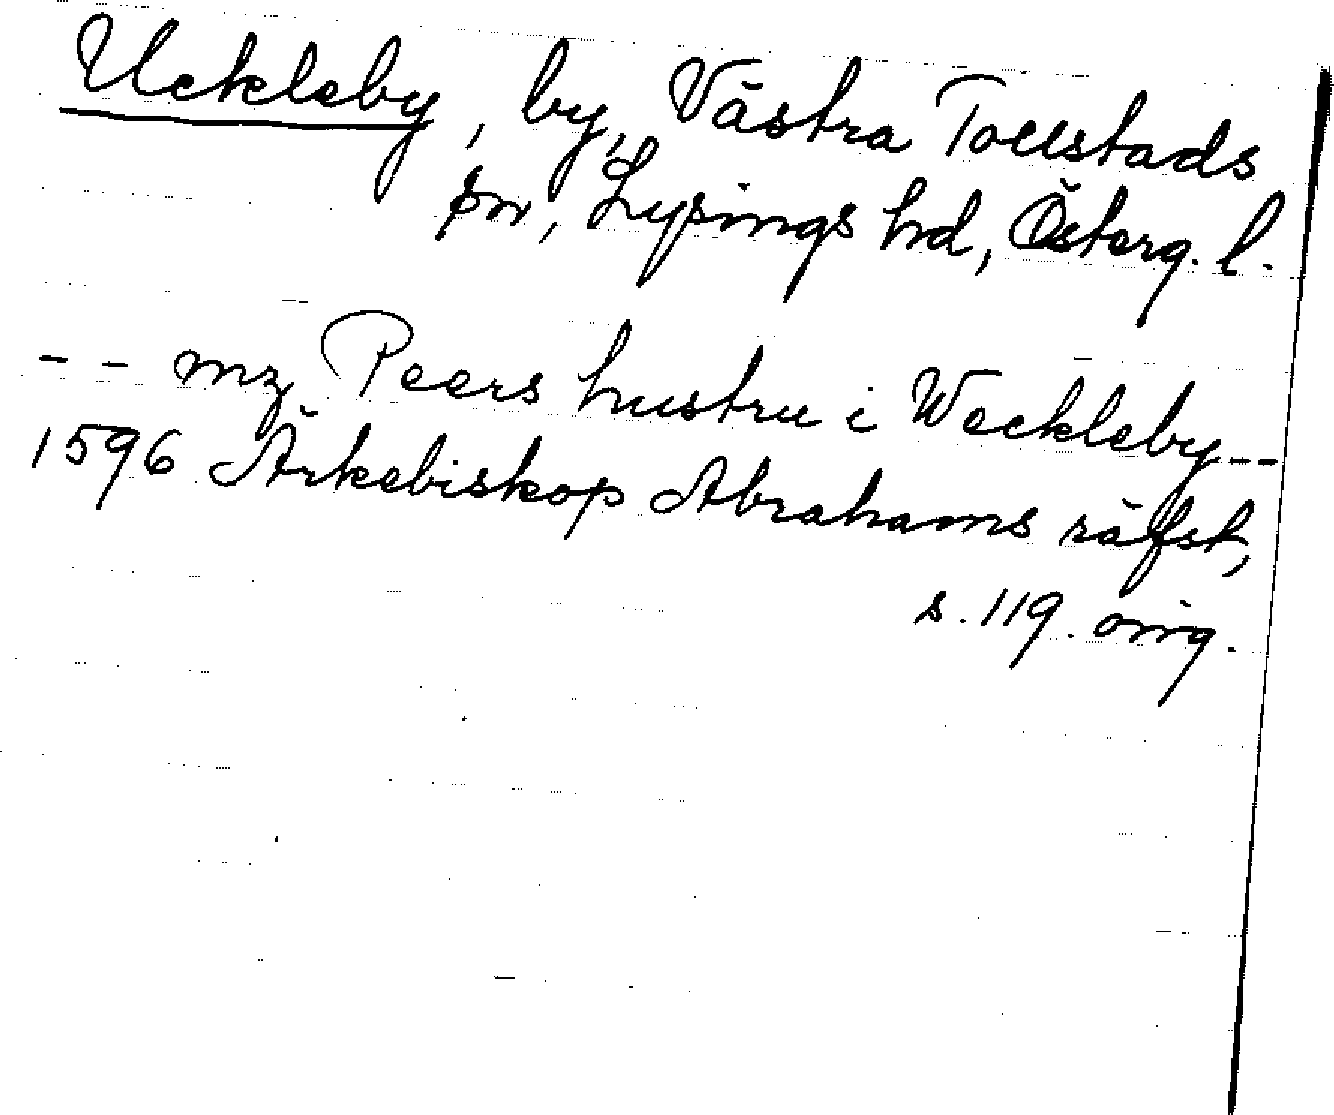 Uckleby, by, Västra Tollstads
sn, Lysings hd, Österg. l.
-- mz Peers hustru i Weckleby --
1596 Ärkebiskop Abrahams räfst,
s. 119. orig.